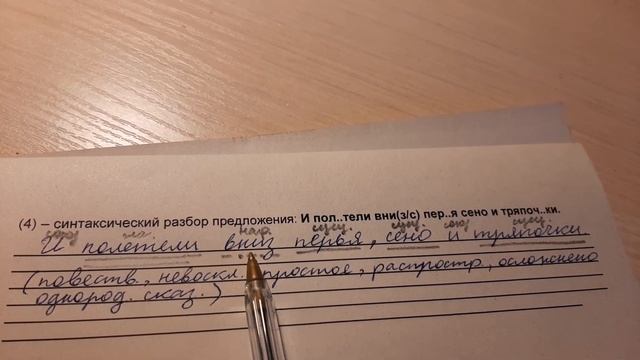 (4) – синтаксический разбор предложения: И пол..тели вни(з/с) пер..я сено и тряпоч..ки.
союз гл. нар. сущ. сущ. союз сущ.
И полетели вниз перья, сено и тряпочки.
(повеств., невоскл., простое, распростр., осложнено
однород. сказ.)